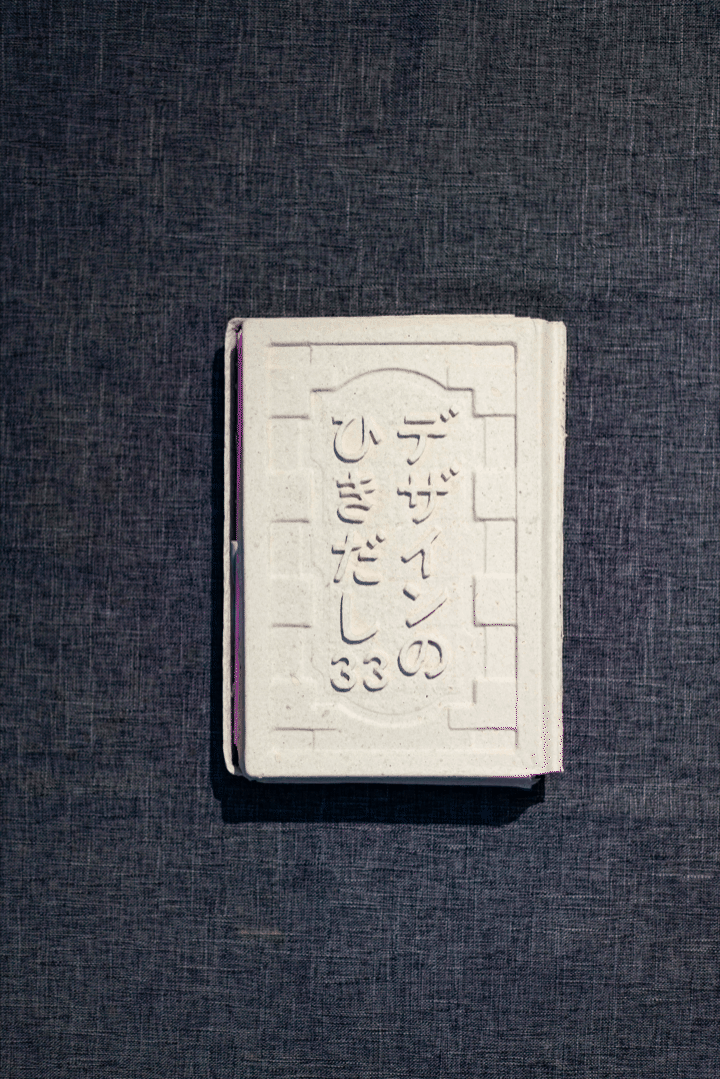 デザインの
ひきだし
33